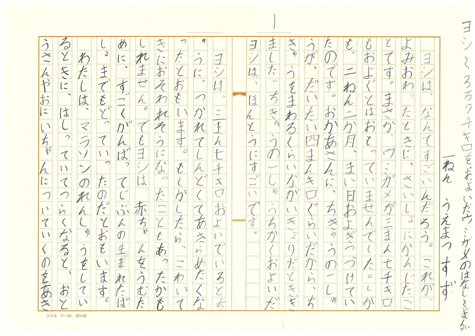 ヨシ 2万7千キロをおよいだウミガメのはなしをよん
ねん うえまつ すず
ヨシは、なんてすごいんだろう。これが、
よみおわったときに、さいしょにかんじたこ
とです。まさか、ウミガメが三まん七千キロ
もおよぐとはおもっていませんでした。しか
も、二ねん二か月、まい日およぎつづけてい
たのです。おかあさんに、ちきゅうの一しゅ
うが、だいたい四まんキロぐらいだから、ち
きゅうをまわるくらいながいきょりだときき
ました。ちきゅうの一しゅうちかくおよいだ
ヨシは、ほんとうにすごいです。
ヨシは、三万七千キロおよいでいるとち
ゅうに、つかれてしんどくてあきらめたくな
ったとおもいます。もしかしたら、こわいて
きにおそわれそうになったこともあったかも
しれません。でもヨシは、赤ちゃんをうむた
めに、すごくがんばってじぶんの生まれたば
しょまでもどっていったのだとおもいます。
わたしは、マラソンのれんしゅうをしてい
るときに、はしっていてつらくなると、おと
うさんやおにいちゃんについていくのをあき